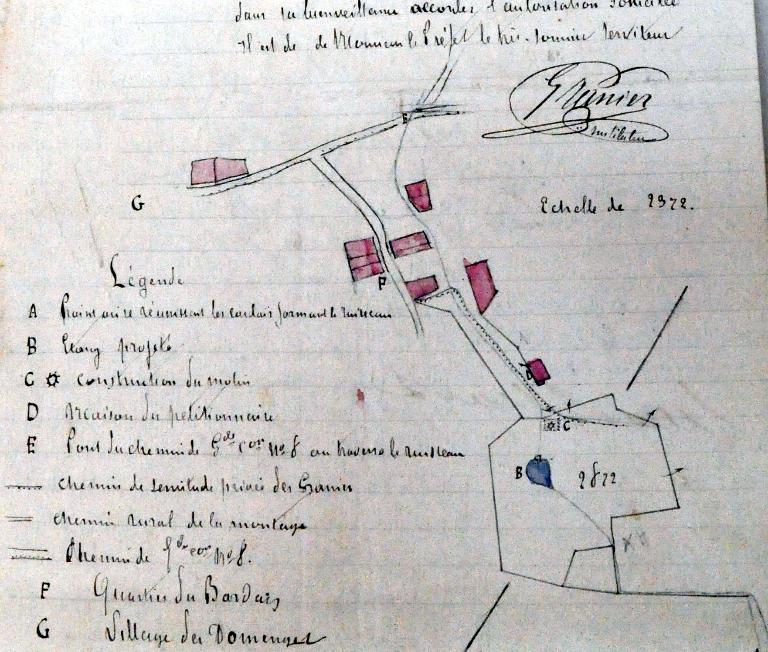 dans sa bienveillance accorder l'autorisation sollicitée
Il est de Monsieur le Préfet le très-soumis serviteur
Granier
instituteur
E
G
Echelle de 2372.
F
Légende
A Point où se réunissent les cordais formant le ruisseau
B Etang projeté
C construction du molin
D Maison du pétitionnaire
E Pont du chemin de Gde Con No 8 on traverse le ruisseau
chemin de servitude privée des Granier
chemin rural de la montagne
Chemin de gde con No 8.
F Quartier du Bardais
G Village des Domenget
D
C
B
2822
A